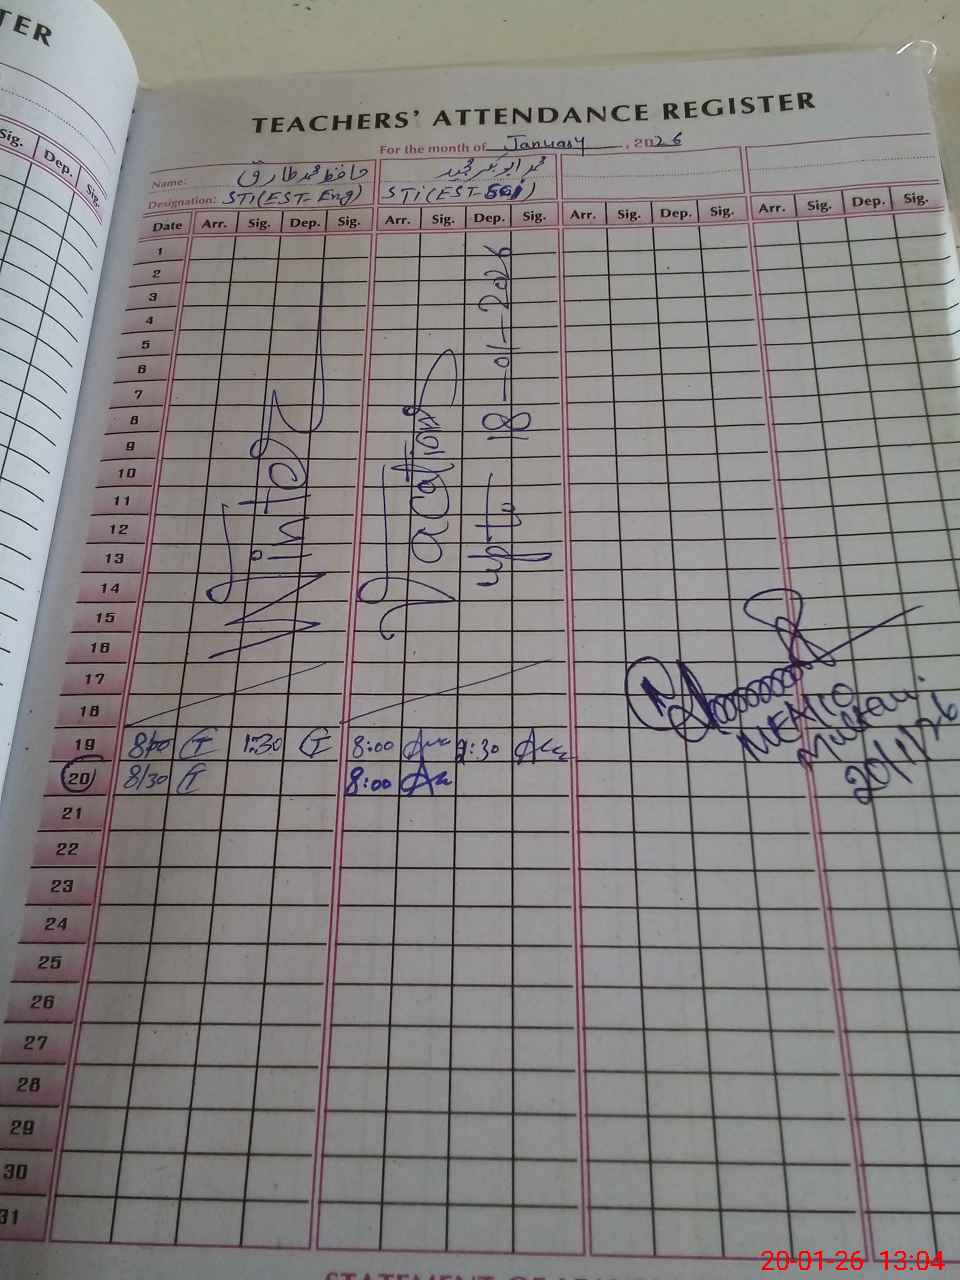 TER
Sig. Dep. Sig.
TEACHERS' ATTENDANCE REGISTER
For the month of January, 2026
Name: حافظ محمد طارق محمد ابوبکر مجید
Designation: STI(EST-Eng) STI(EST-
Date Arr. Sig. Dep. Sig. Arr. Sig. Dep. Sig. Arr. Sig. Dep. Sig. Arr. Sig. Dep. Sig.
1
2
3
4
5
6
7
8
9
10
11
12
13
14
15
16
17
18
Winter Vacation upto 18-01-2026
19 8:00 1:30 8:00 1:30
20 8/30 8:00
Multan.
20/1/26
21
22
23
24
25
26
27
28
29
30
31
20-01-26 13:04